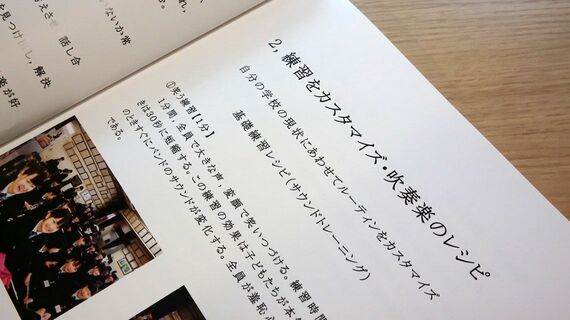 2, 練習をカスタマイズ・吹奏楽のレシピ
自分の学校の現状にあわせてルーティンをカスタマイズ
基礎練習レシピ(サウンドトレーニング)
①笑う練習【1分】
1分間, 全員で大きな声, 変顔で笑いつづける。練習時間
きは30秒に短縮する。この練習の効果は子どもたちが本
のときすぐにバンドのサウンドが変化する。全員が羞恥
である。
れ,
ないか常
話し合
を見つけ し, 解決
楽が好